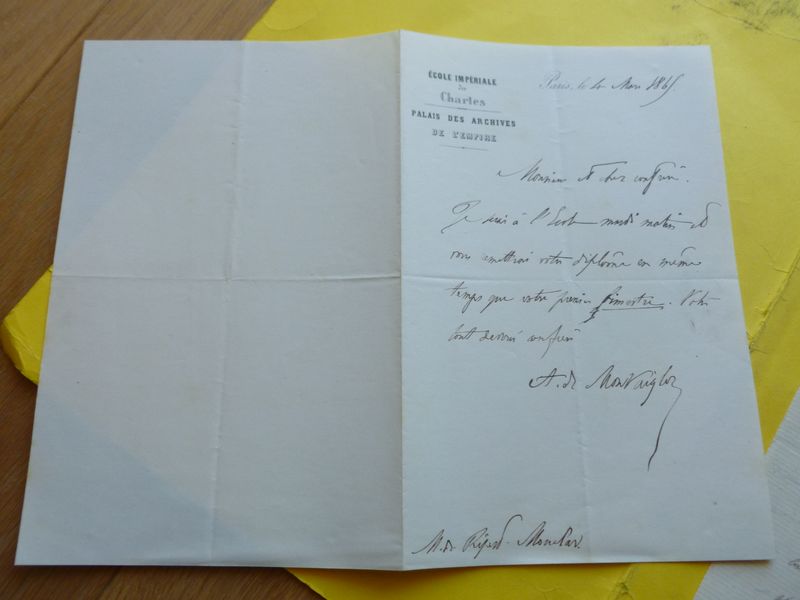 ÉCOLE IMPÉRIALE
des
Chartes
PALAIS DES ARCHIVES
DE L'EMPIRE
Paris, le Mars 1865.
Monsieur et cher confrère.
Je serai à l'Ecole mardi matin et
vous remettrai votre diplôme en même
temps que votre premier trimestre. Votre
tout dévoué confrère
A. de Montaiglon
M. de Ripert-Monclar.